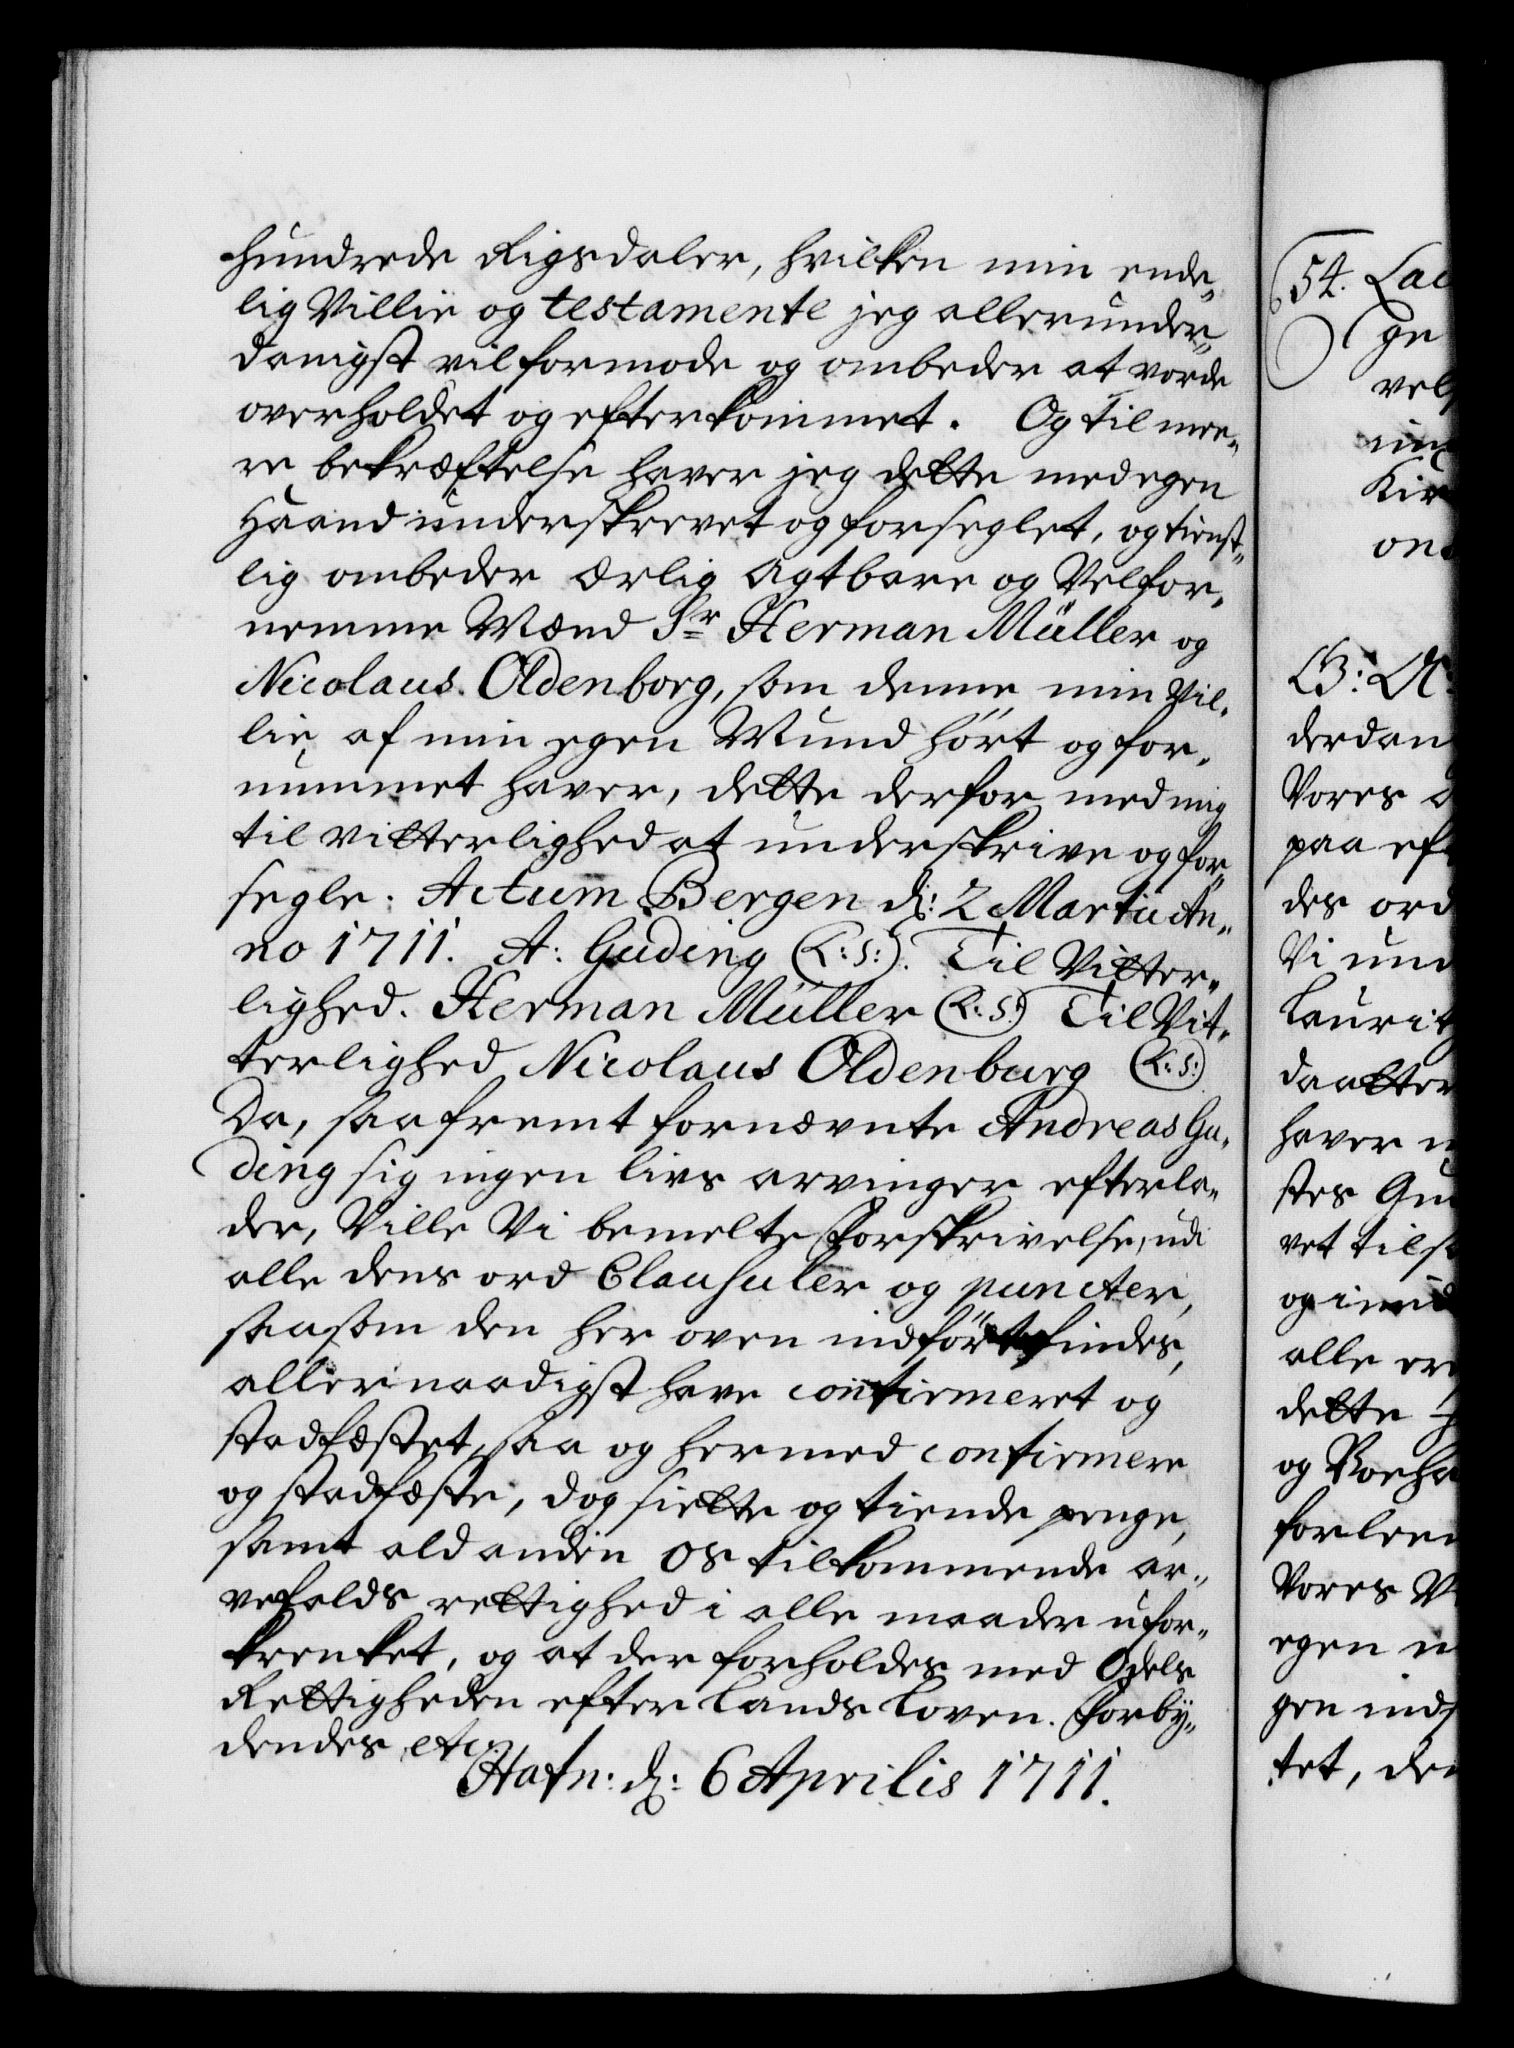 hundrede Rigsdaler, hvilken min ende„
lig Villie og testamente jeg allerunder„
danigst vil formode og ombeder at vorde
overholdet og efterkommet. Og til mee„
re bekræftelse haver jeg dette med egen
Haand underskrevet og forseglet, og tienst„
lig ombeder Ærlig Agtbare og Velfor„
nemme Mænd Sr Herman Müller og
Nicolaus Oldenborg, som denne min Vil„
lie af min egen Mund hört og for„
nummet haver, dette derfor med mig
til vitterlighed at underskrive og for„
segle. Actum Bergen d: 2 Martii An„
no 1711. A: Guding (L:S:). Til Vitter„
lighed. Herman Müller (L:S:) Til Vit„
terlighed Nicolaus Oldenburg (L:S:)
Da, saafremt fornævnte Andreas Gu„
ding sig ingen livs arvinger efterla„
der, Ville Vi bemelte Forskrivelse, udi
alle dens ord Clausuler og puncter,
saasom den her oven indfört findes,
allernaadigst have confirmeret og
stadfæstet, saa og hermed confirmere
og stadfæste, dog siette og tiende penge,
samt ald anden os tilkommende ar„
vefalds rettighed i alle maader ufor„
krenket, og at der forholdes med Odels
Rettigheden efter Lands Loven. Forby„
dendes etc.
Hafn: d: 6 Aprilis 1711.
54. Lau
ge
vel
Kir
G: A:
derdan
Vores
paa ef
des ord
Vi und
Laurit
daatter
haver
stes
vet til
og
alle
dette
og
forleen
Vores
egen
gen ind
tet, den